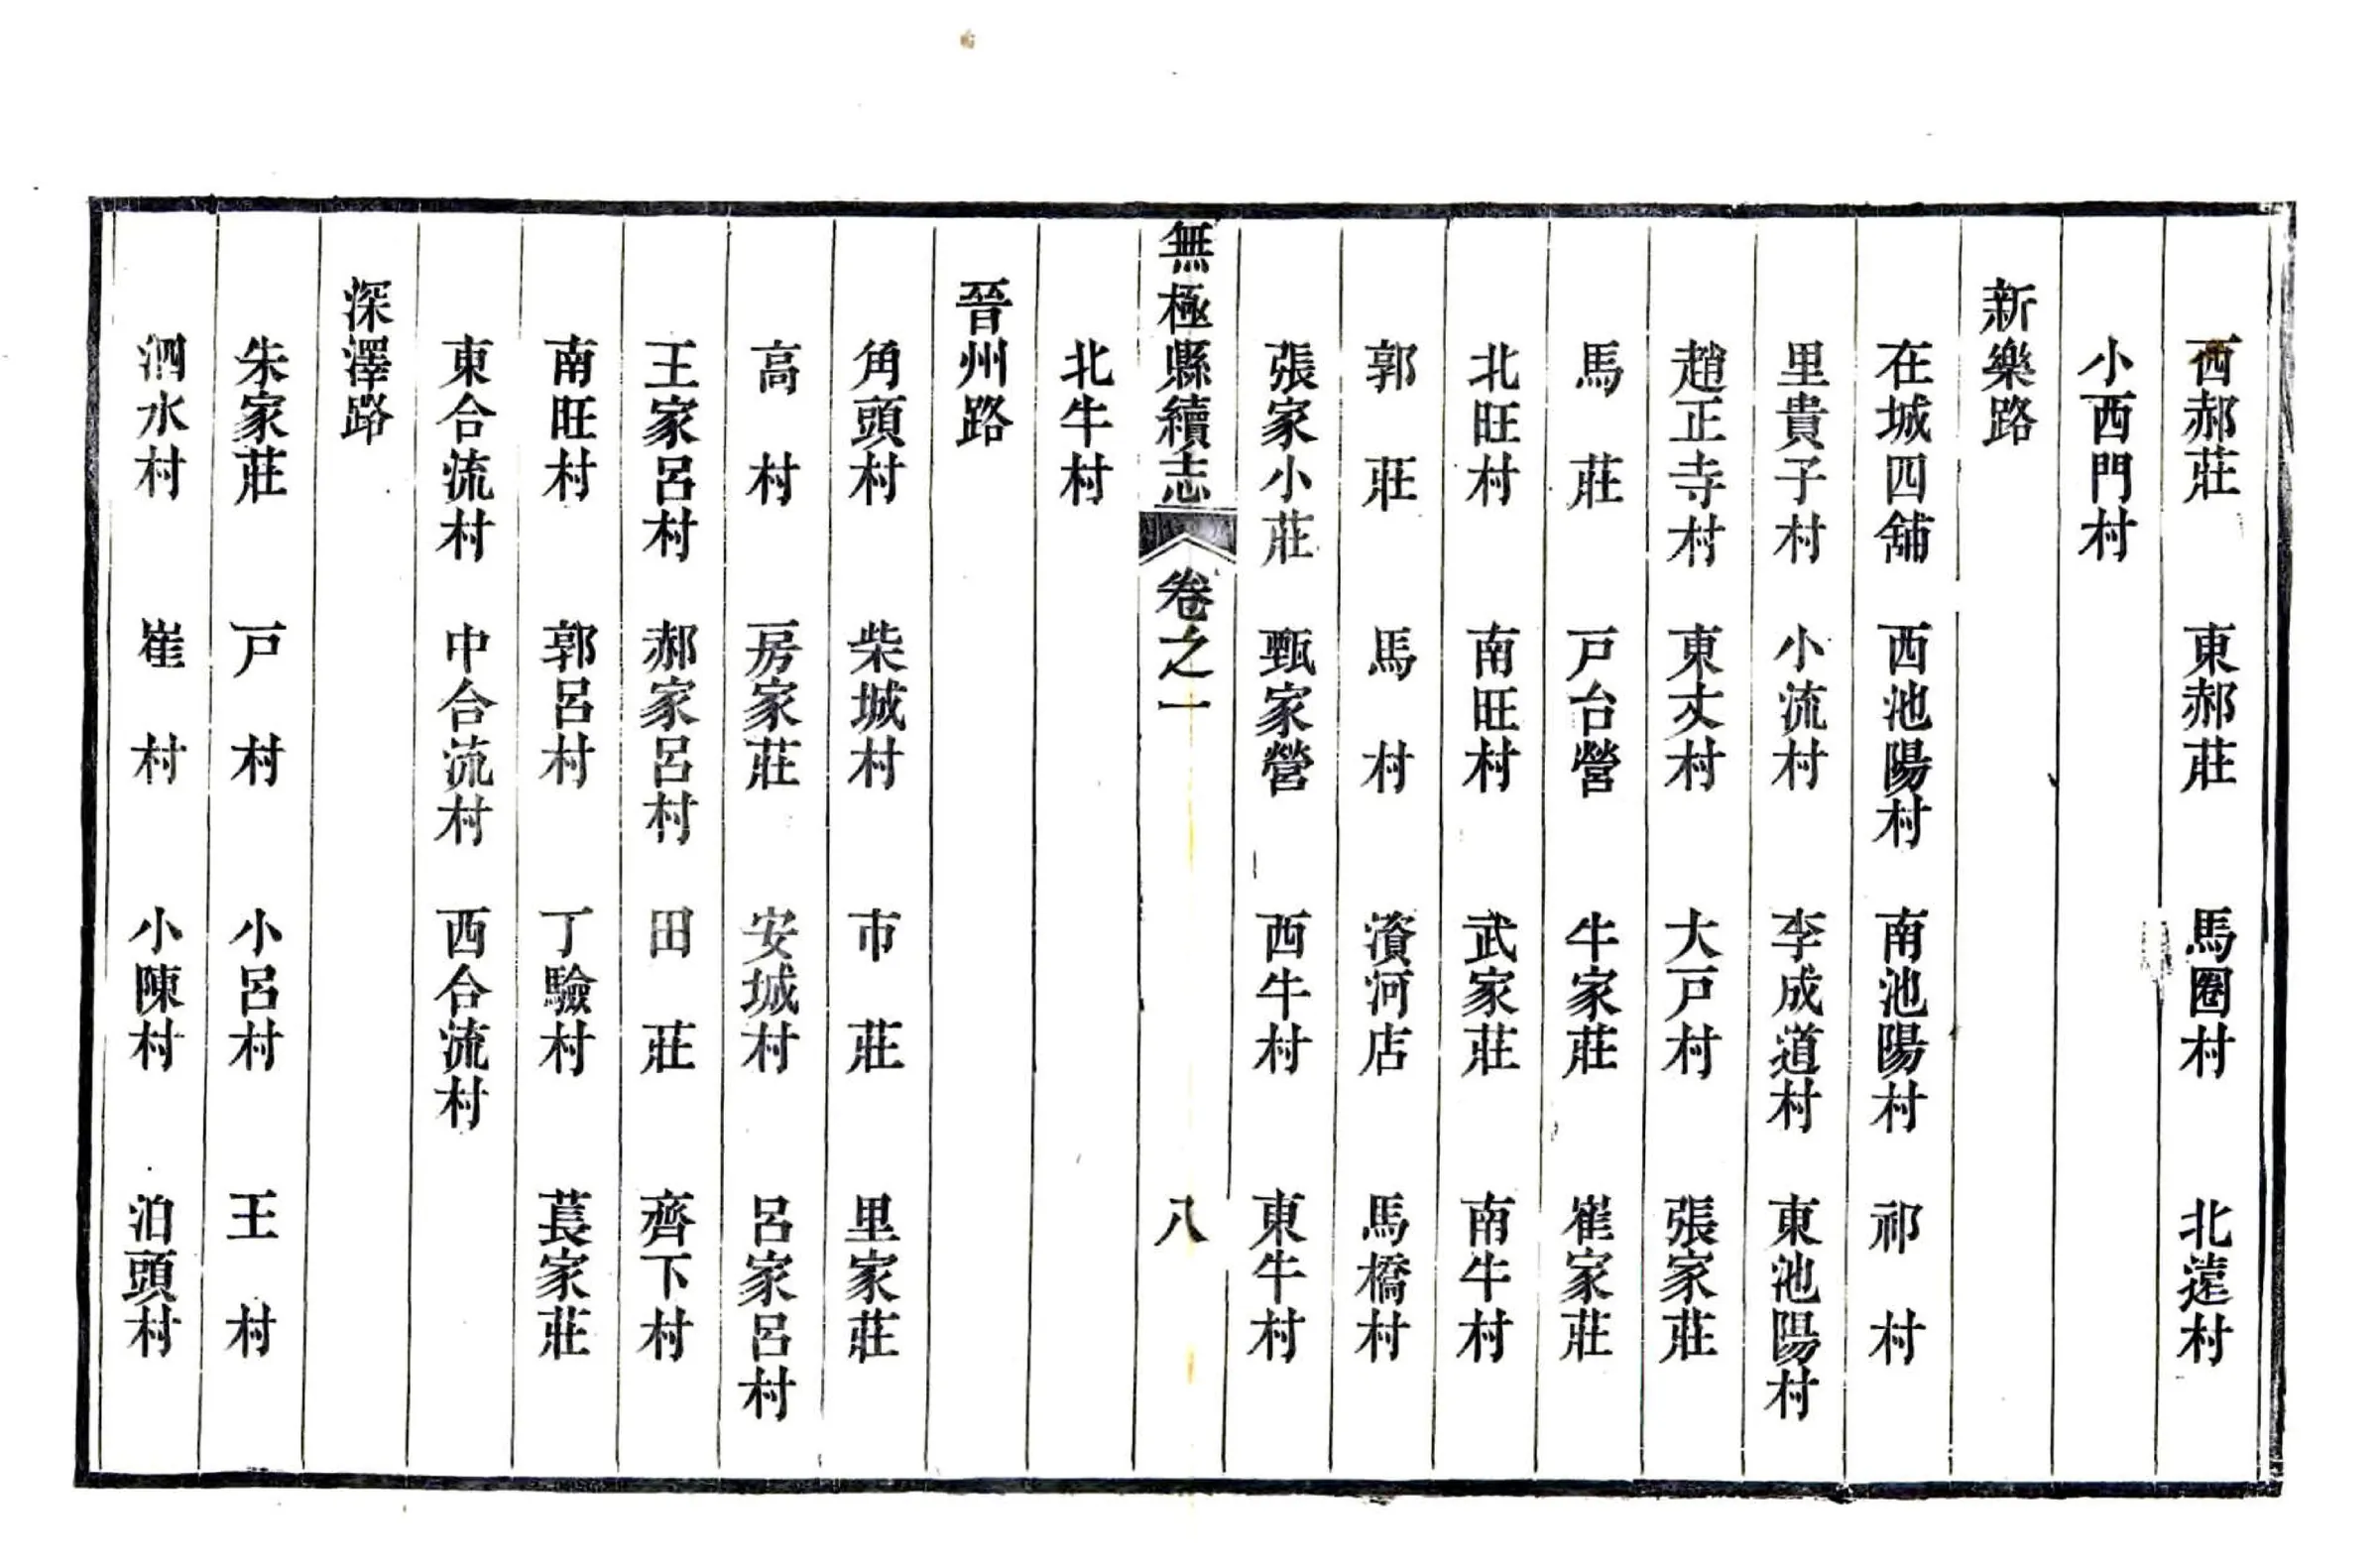 西郝莊　東郝莊　馬圈村　北遠村
小西門村
新樂路
在城四舖　西池陽村　南池陽村　祁村
里貴子村　小流村　李成道村　東池陽村
趙正寺村　東丈村　大戸村　張家莊
馬莊　戸台營　牛家莊　崔家莊
北旺村　南旺村　武家莊　南牛村
郭莊　馬村　濱河店　馬橋村
張家小莊　甄家營　西牛村　東牛村
無極縣續志　卷之一　八
北牛村
晉州路
角頭村　柴城村　市莊　里家莊
高村　房家莊　安城村　呂家呂村
王家呂村　郝家呂村　田莊　齊下村
南旺村　郭呂村　丁驗村　萇家莊
東合流村　中合流村　西合流村
深澤路
朱家莊　戸村　小呂村　王村
泗水村　崔村　小陳村　泊頭村